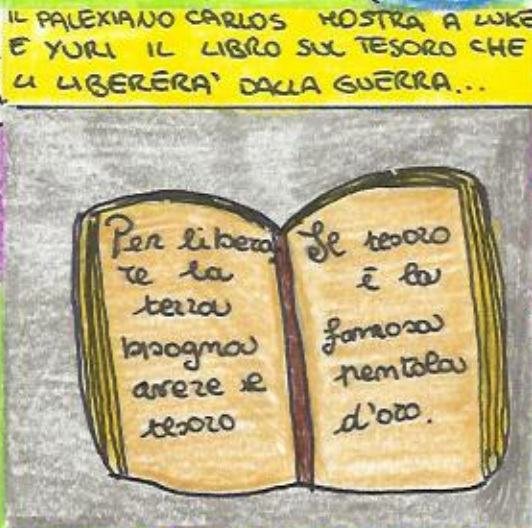 IL PALEXIANO CARLOS MOSTRA A LUKE
E YURI IL LIBRO SUL TESORO CHE
LI LIBERERA' DALLA GUERRA...
Per libera
re la
terra
bisogna
avere il
tesoro
Il tesoro
è la
famosa
pentola
d'oro.